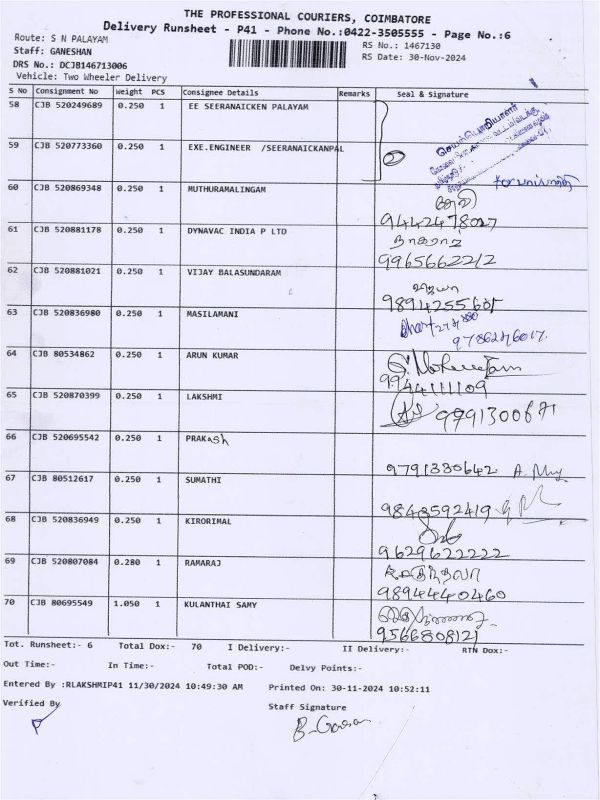 THE PROFESSIONAL COURIERS, COIMBATORE
Delivery Runsheet - P41 - Phone No.:0422-3505555 - Page No.:6
Route: S N PALAYAM
RS No.: 1467130
Staff: GANESHAN
RS Date: 30-Nov-2024
DRS No.: DCJB146713006
Vehicle: Two Wheeler Delivery
S No Consignment No Weight PCS Consignee Details Remarks Seal & Signature
58 CJB 520249689 0.250 1 EE SEERANAICKEN PALAYAM
செயற்பொறியாளர்
59 CJB 520773360 0.250 1 EXE.ENGINEER /SEERANAICKANPAL
60 CJB 520869348 0.250 1 MUTHURAMALINGAM
9442478027
61 CJB 520881178 0.250 1 DYNAVAC INDIA P LTD
நாகராஜ்
9965662212
62 CJB 520881021 0.250 1 VIJAY BALASUNDARAM
9894255605
63 CJB 520836980 0.250 1 MASILAMANI
64 CJB 80534862 0.250 1 ARUN KUMAR
9944111109
65 CJB 520870399 0.250 1 LAKSHMI
9791300671
66 CJB 520695542 0.250 1 PRAKASh
9791330642
67 CJB 80512617 0.250 1 SUMATHI
9843592419
68 CJB 520836949 0.250 1 KIRORIMAL
9629622222
69 CJB 520807084 0.280 1 RAMARAJ
9894440460
70 CJB 80695549 1.050 1 KULANTHAI SAMY
9566808121
Tot. Runsheet:- 6 Total Dox:- 70 I Delivery:- II Delivery:- RTN Dox:-
Out Time:- In Time:- Total POD:- Delvy Points:-
Entered By :RLAKSHMIP41 11/30/2024 10:49:30 AM Printed On: 30-11-2024 10:52:11
Verified By Staff Signature